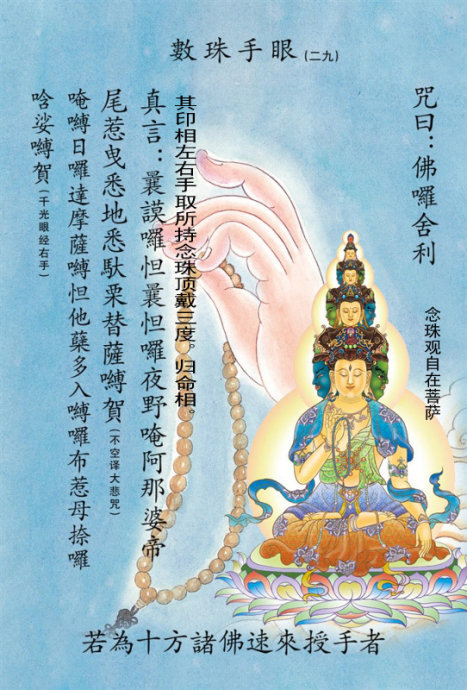 數珠手眼(二九)
咒曰：佛囉舍利
念珠观自在菩萨
其印相左右手取所持念珠顶戴三度。归命相。
真言：曩謨囉怛曩怛囉夜野唵阿那婆帝
尾惹曳悉地悉馱栗替薩嚩賀(不空译大悲咒)
唵嚩日囉達摩薩嚩怛他蘖多入嚩囉布惹母捺囉
唅娑嚩賀(千光眼经右手)
若為十方諸佛速來授手者